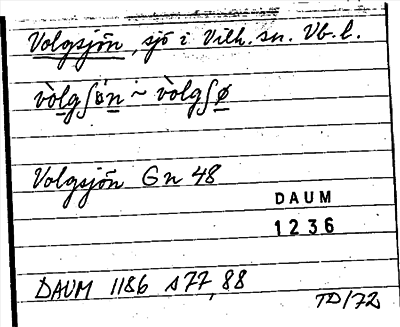 Volgsjön, sjö i Vilh. sn. Vb. l.
vòlgʃön ~ vòlgʃø
Volgsjön Gn 48
DAUM
1236
DAUM 1186 s 77, 88
TD/72